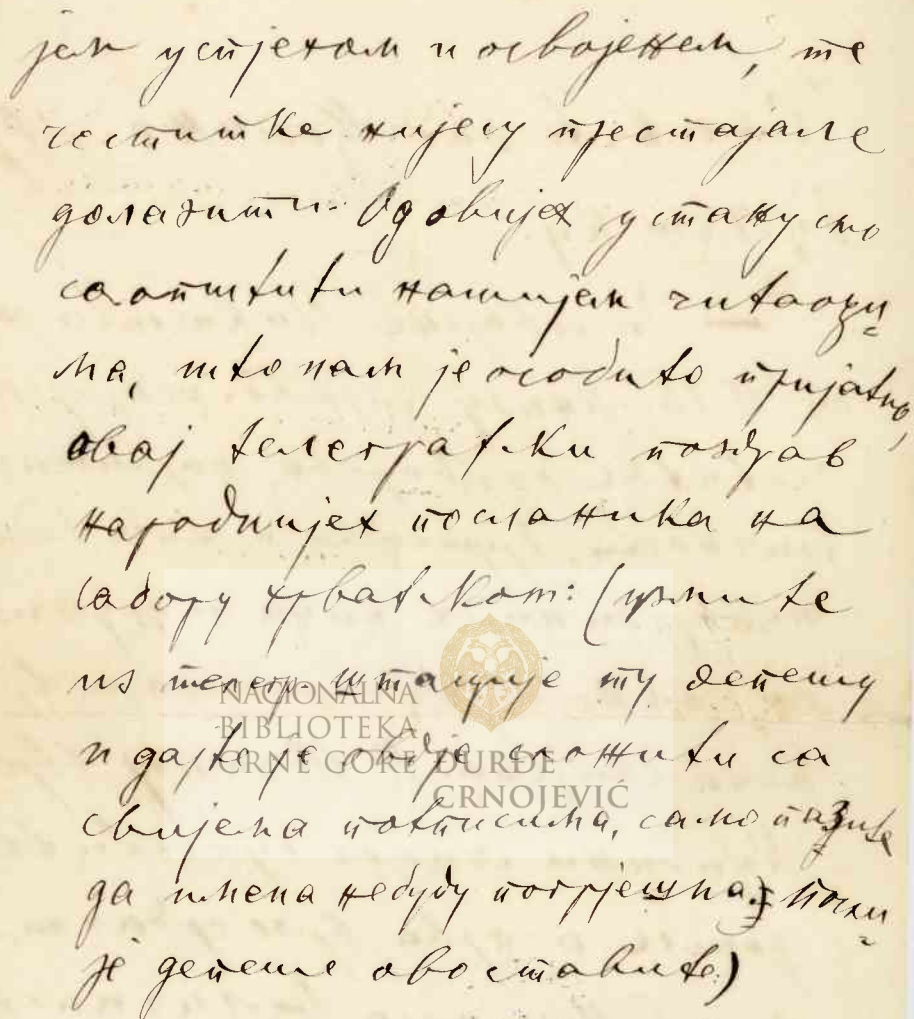 јем успјехом и освојењем, те
честитке нијесу престајале
долазити. Од овијех у стању смо
саопштити нашијем читаоци=
ма, што нам је особито пријатно,
овај телеграфски поздрав
народнијех посланика на
сабору хрватском: (узмите
из телегр. штације ту депешу
и дајте је овдје сложити са
свијема потписима, само пазите
да имена не буду погрјешна; посли=
је депеше ово ставите:)
NACIONALNA
BIBLIOTEKA
CRNE GORE ĐURĐE
CRNOJEVIĆ